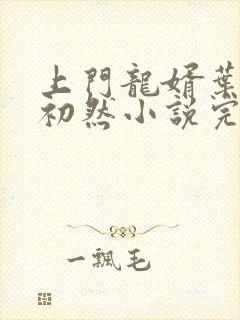 上門龍婿葉
初然小説完
一飄毛